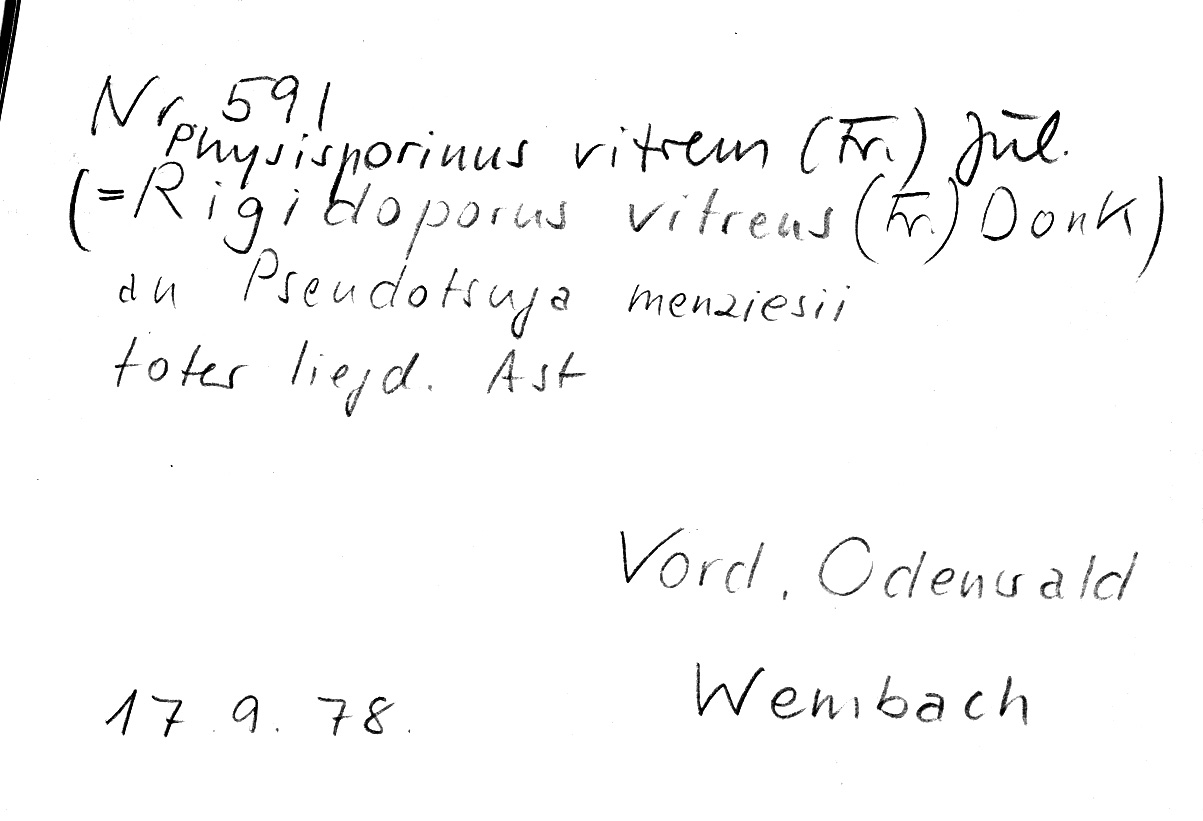 Nr. 591
Physisporinus vitreus (Fr.) Jül.
(=Rigidoporus vitreus (Fr.) Donk)
an Pseudotsuga menziesii
toter liegd. Ast
Vord. Odenwald
Wembach
17.9.78.